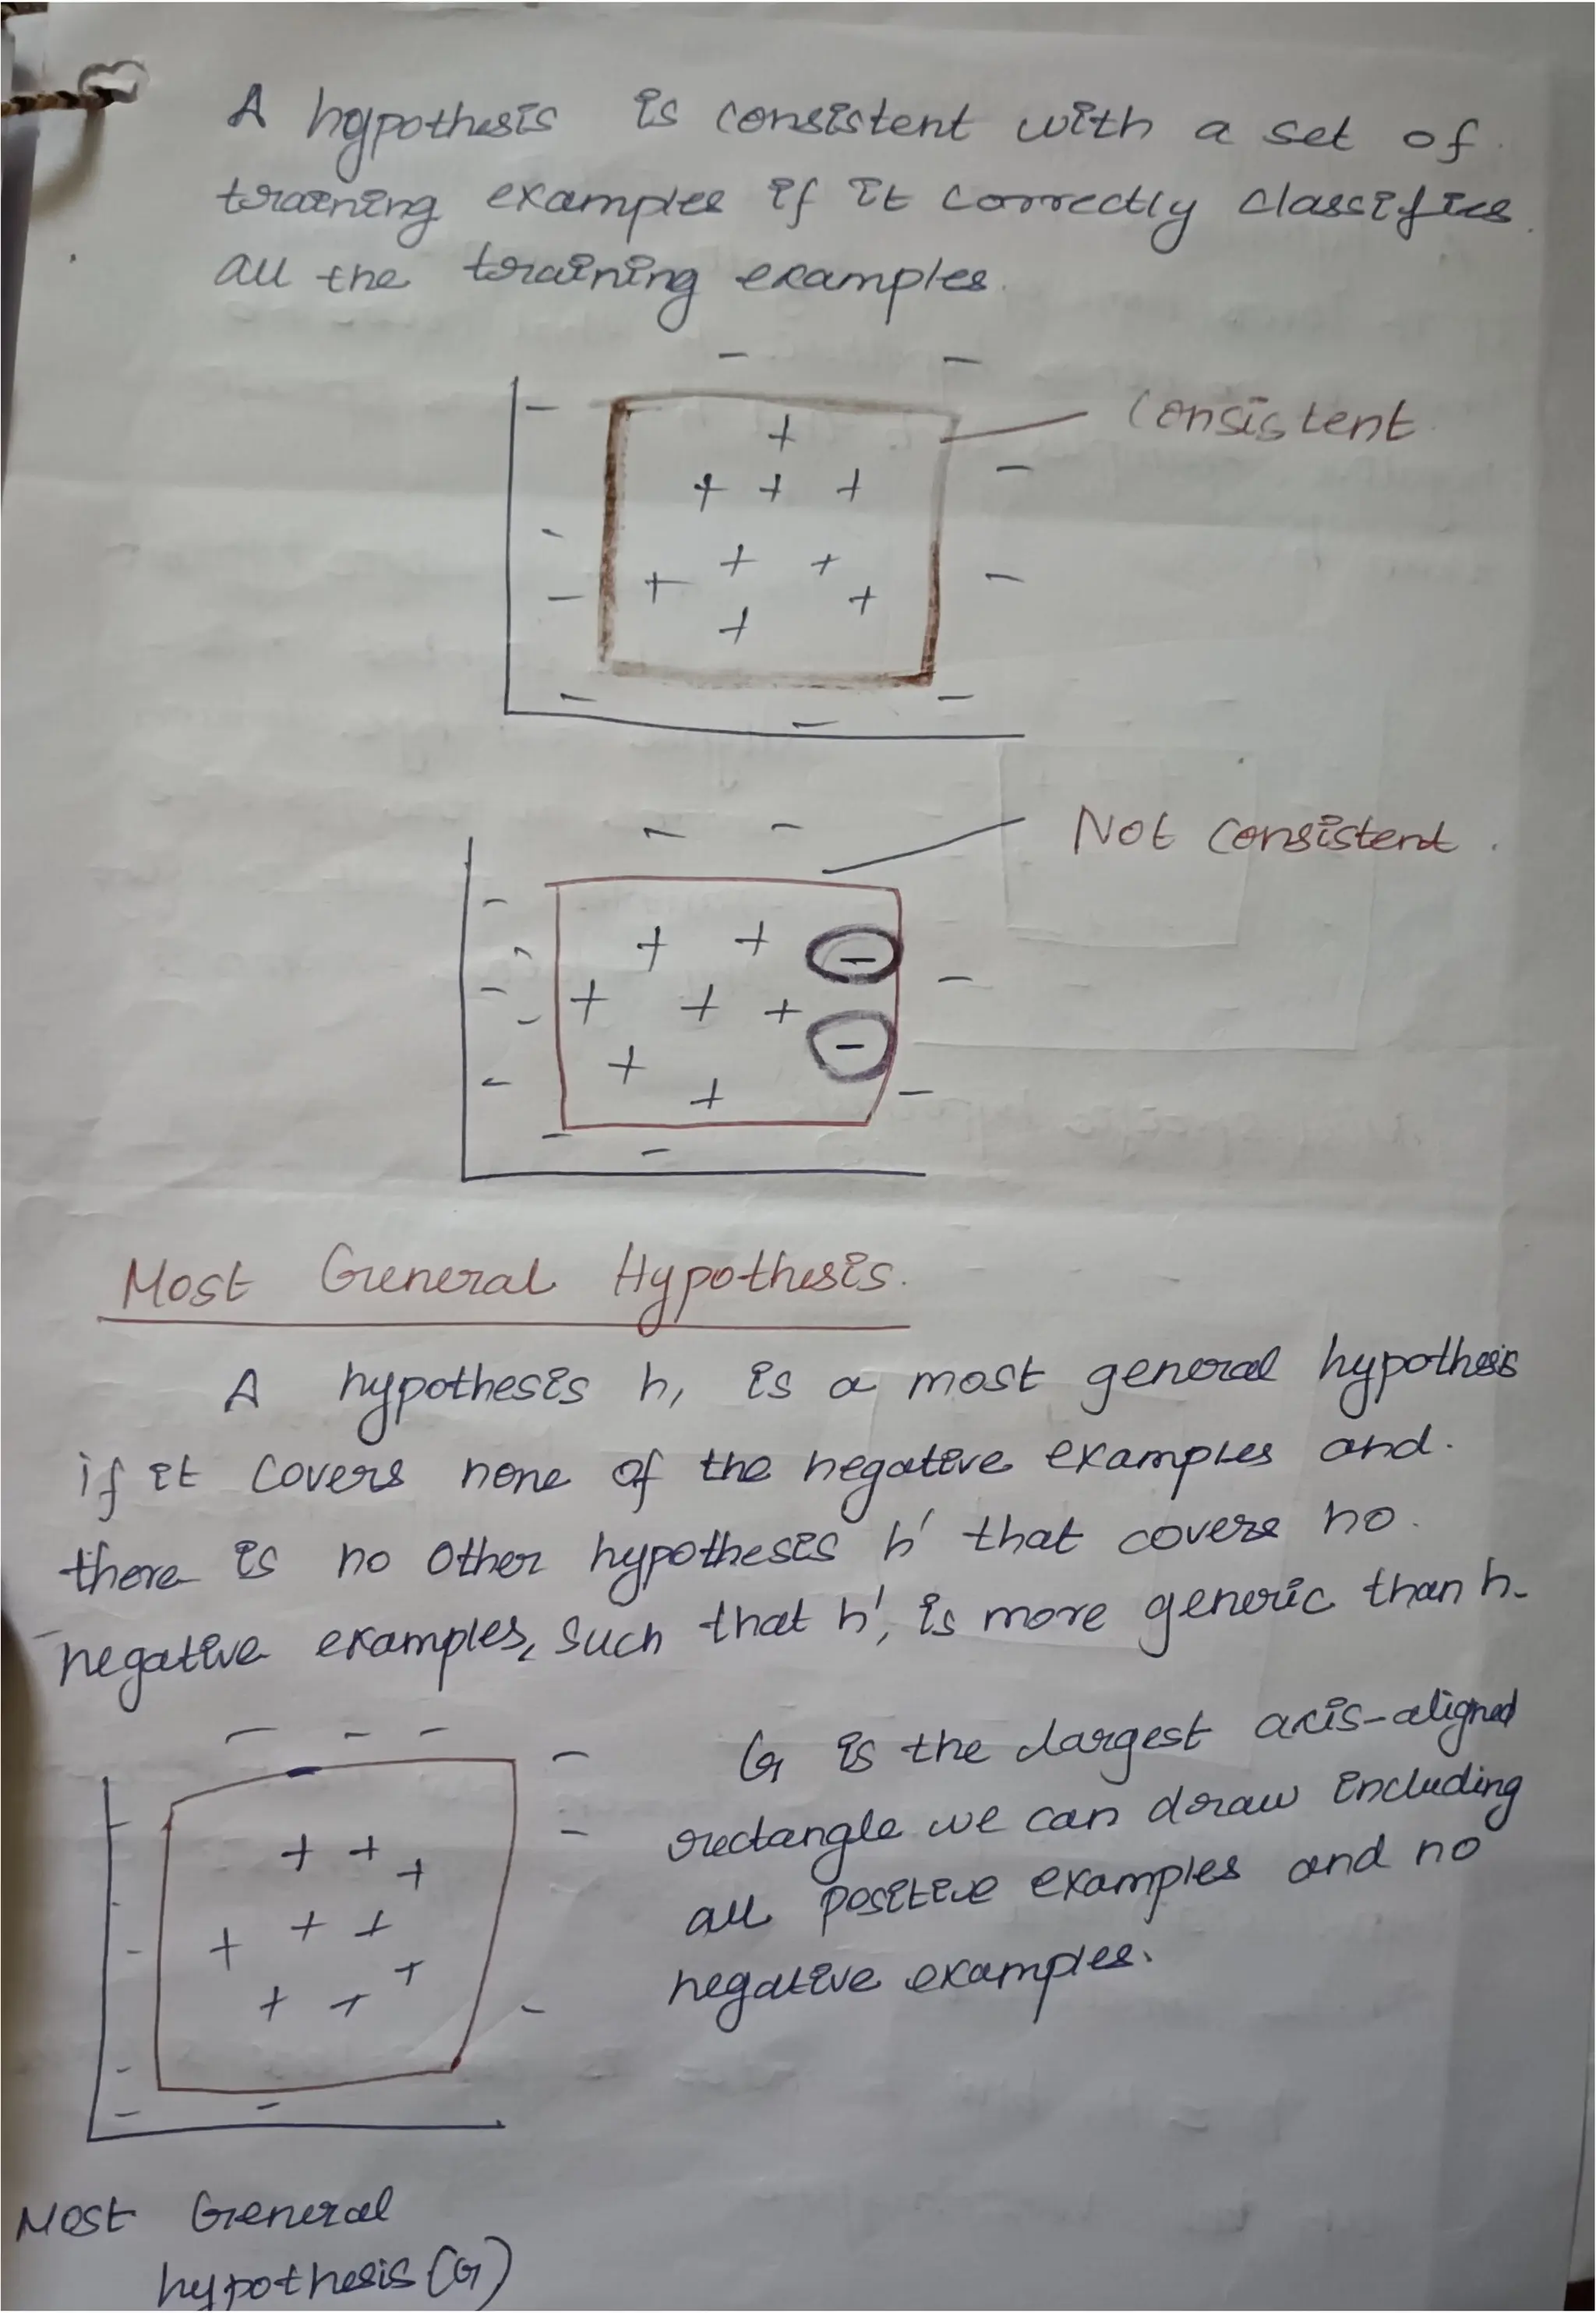 A hypothesis is consistent with a set of
training examples if it correctly classifies
all the training examples.
Consistent
Not consistent.
Most General Hypothesis.
A hypothesis h, is a most general hypothesis
if it covers none of the negative examples and.
there is no other hypothesis h' that covers no.
negative examples, such that h', is more generic than h.
G is the largest axis-aligned
rectangle we can draw including
all positive examples and no
negative examples.
Most General
hypothesis (G)